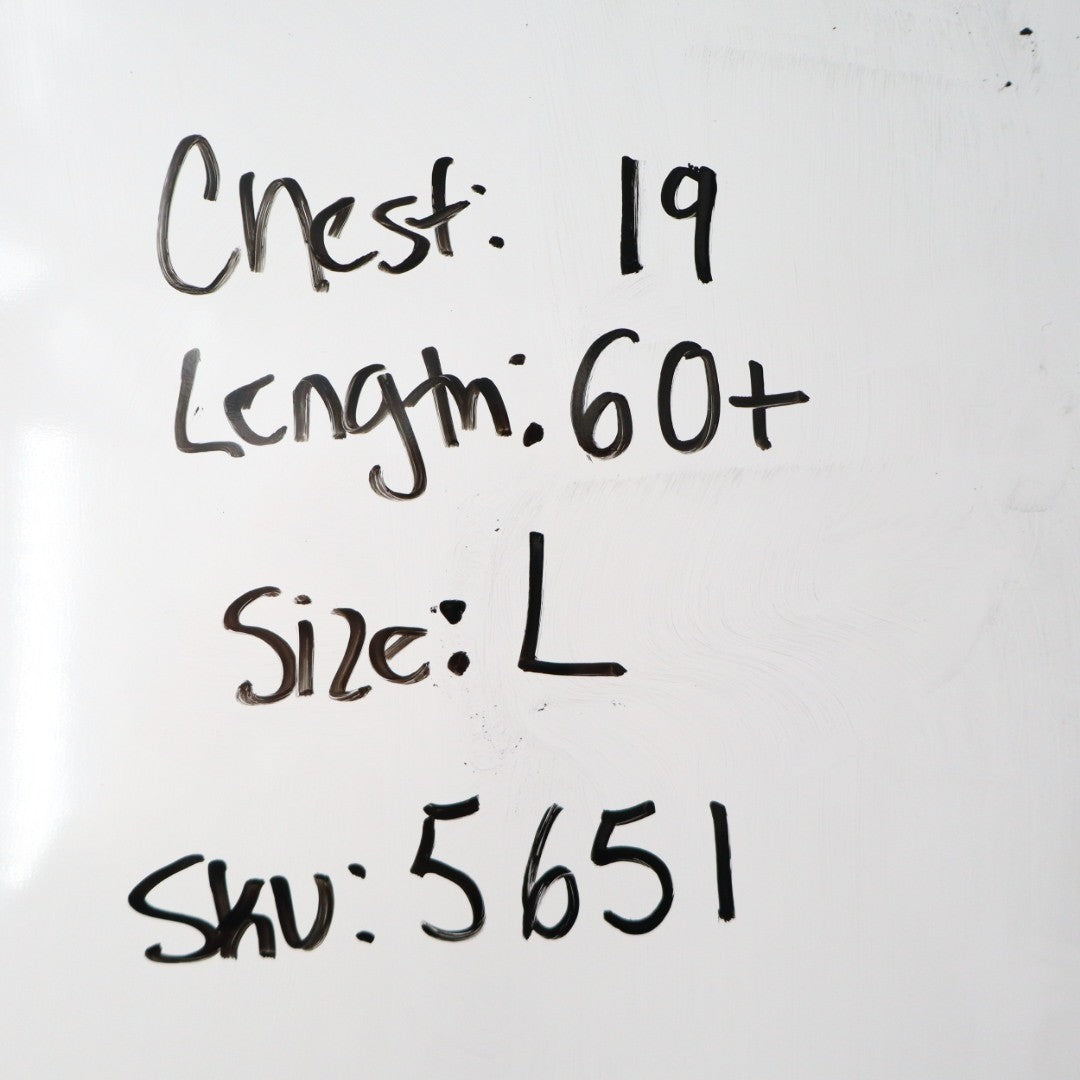 Chest: 19
Length: 60+
Size: L
Sku: 5651